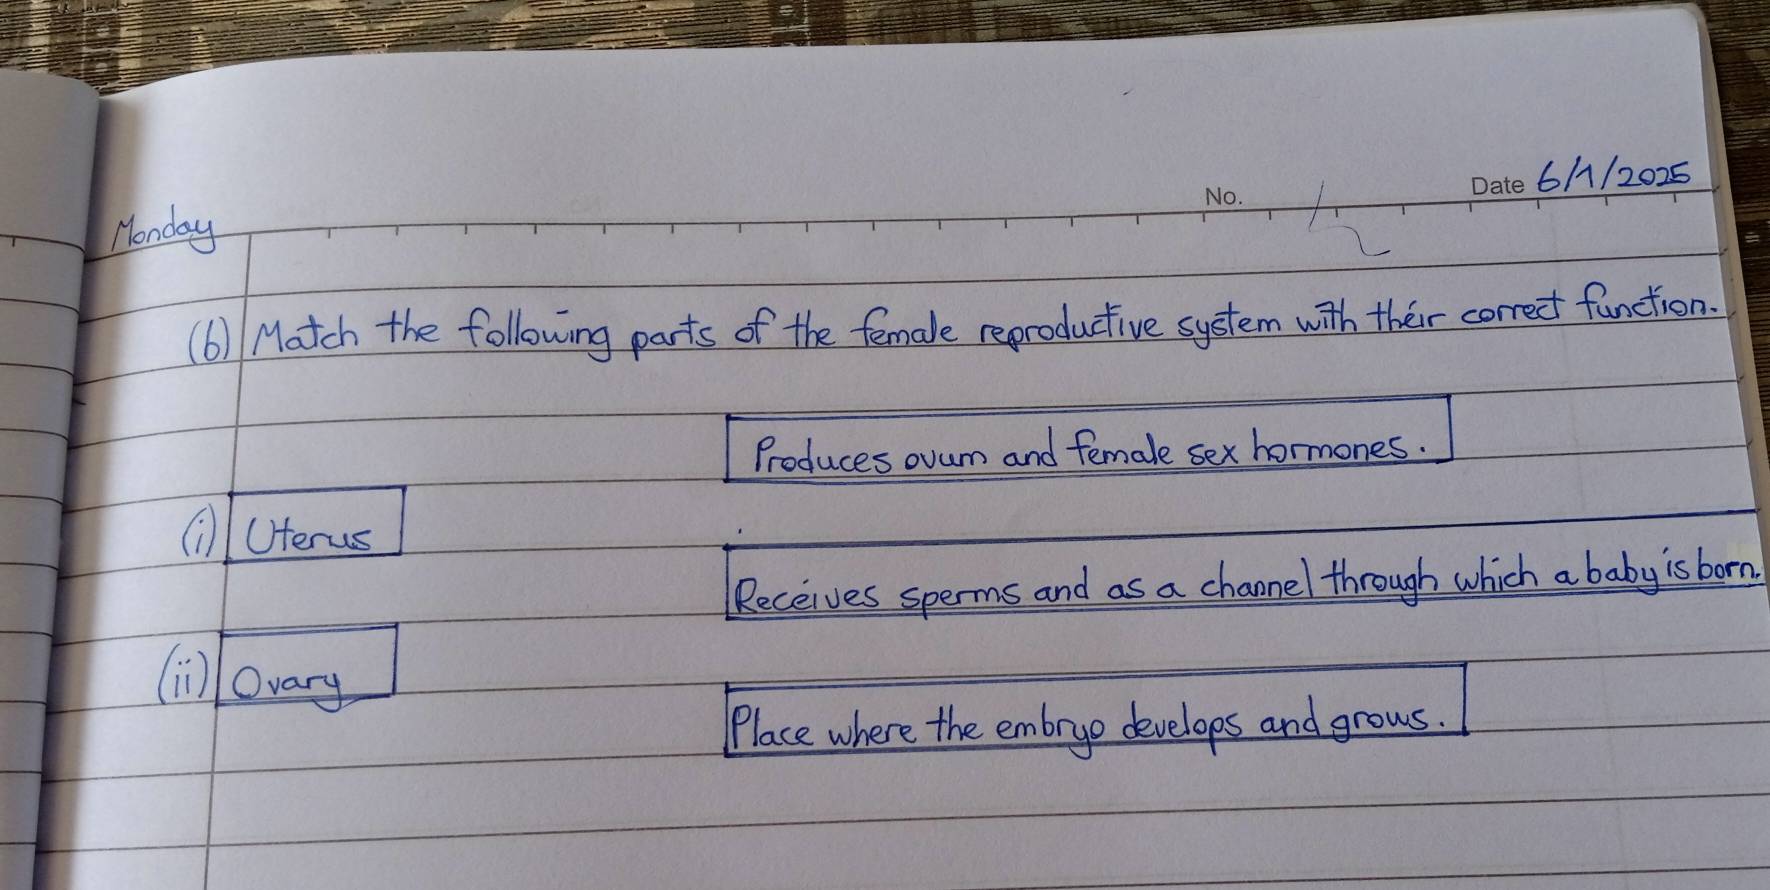 No.
Date 6/1/2025
Monday
(b) Match the following parts of the female reproductive system with their correct function.
Produces ovum and female sex hormones.
(i) Uterus
Receives sperms and as a channel through which a baby is born.
(ii) Ovary
Place where the embryo develops and grows.